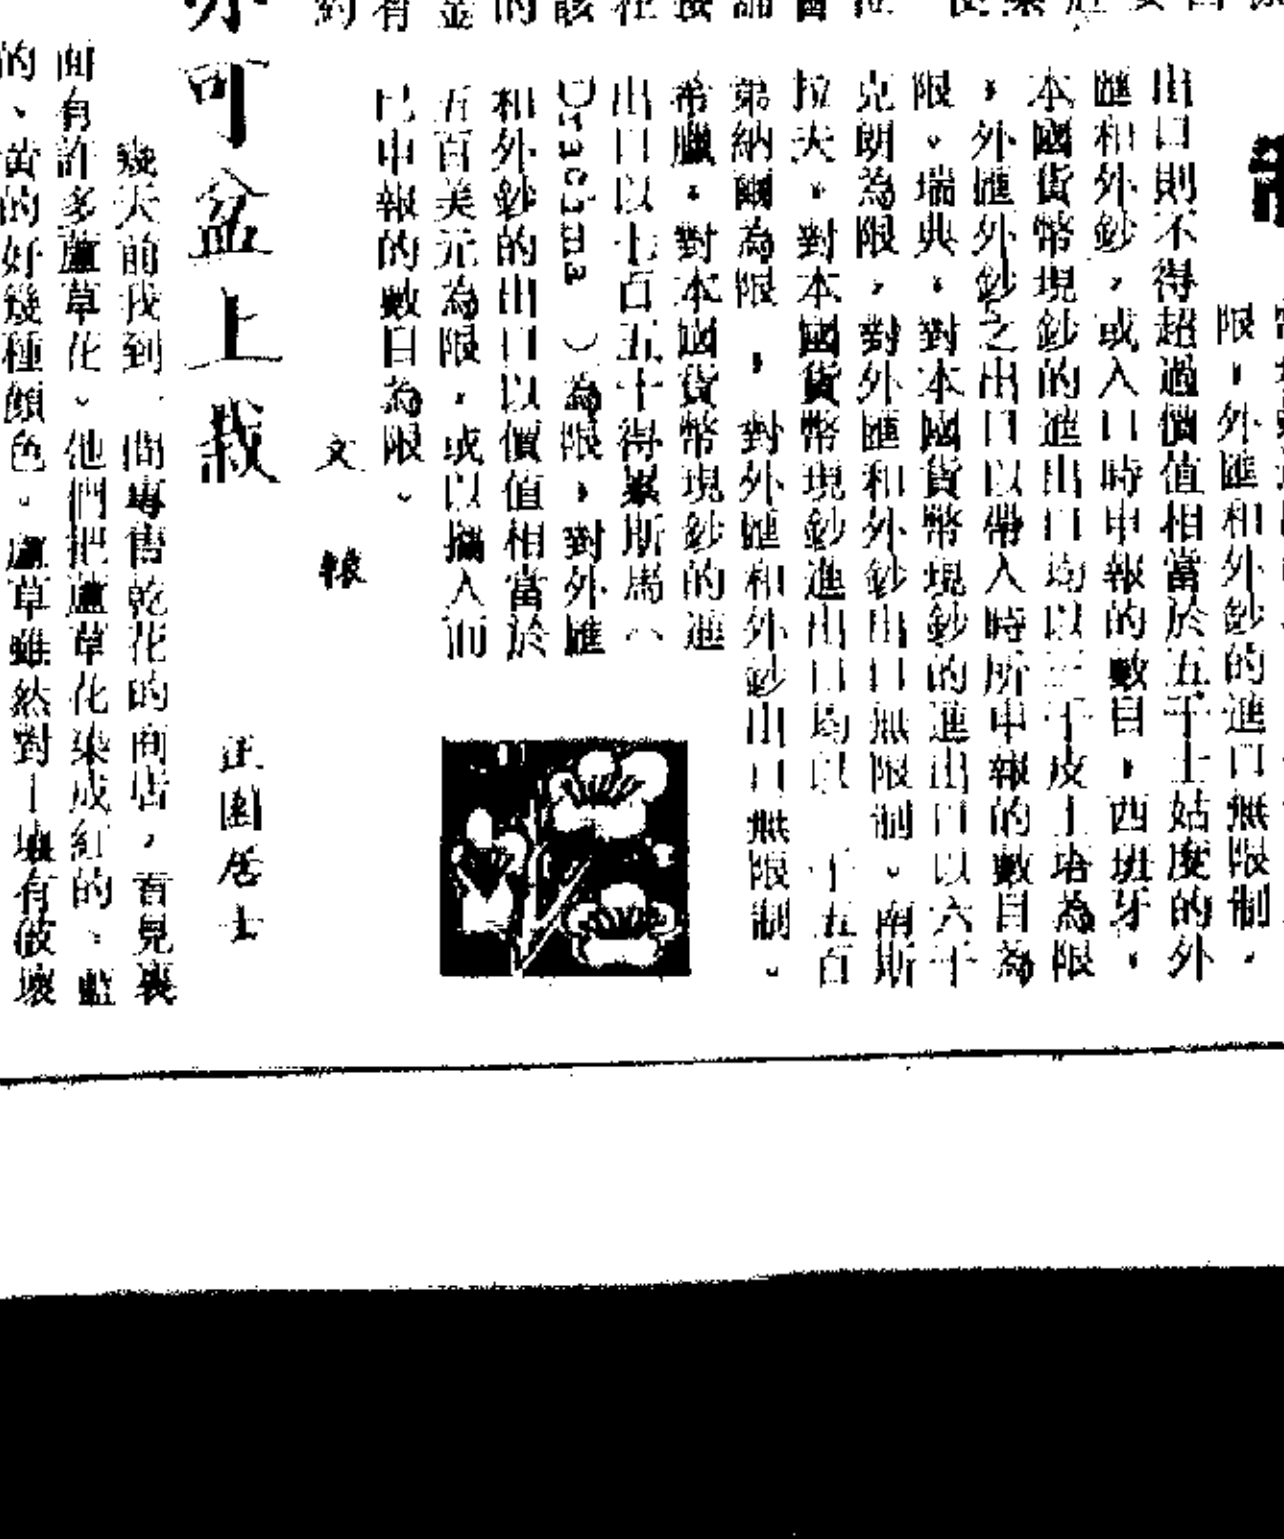 限，外匯和外鈔的進口無限制，
出口則不得超過價值相當於五千士姑度的外
匯和外鈔，或入口時申報的數目，西班牙，
本國貨幣現鈔的進出口均以三千皮士塔為限
，外匯外鈔之出口以帶入時所申報的數目為
限。瑞典，對本國貨幣現鈔的進出口以六千
克朗為限，對外匯和外鈔出口無限制。南斯
拉夫，對本國貨幣現鈔進出口均以一千五百
弟納爾為限，對外匯和外鈔出口無限制。
希臘，對本國貨幣現鈔的進
出口以七百五十得累斯馬（
Drachma）為限，對外匯
和外鈔的出口以價值相當於
五百美元為限，或以攜入而
已申報的數目為限。
文
可盆上栽
正園居士
幾天前我到一間專售乾花的商店，看見裏
面有許多蘆草花。他們把蘆草花染成紅的、藍
的、黃的好幾種顏色。蘆草雖然對土壤有破壞